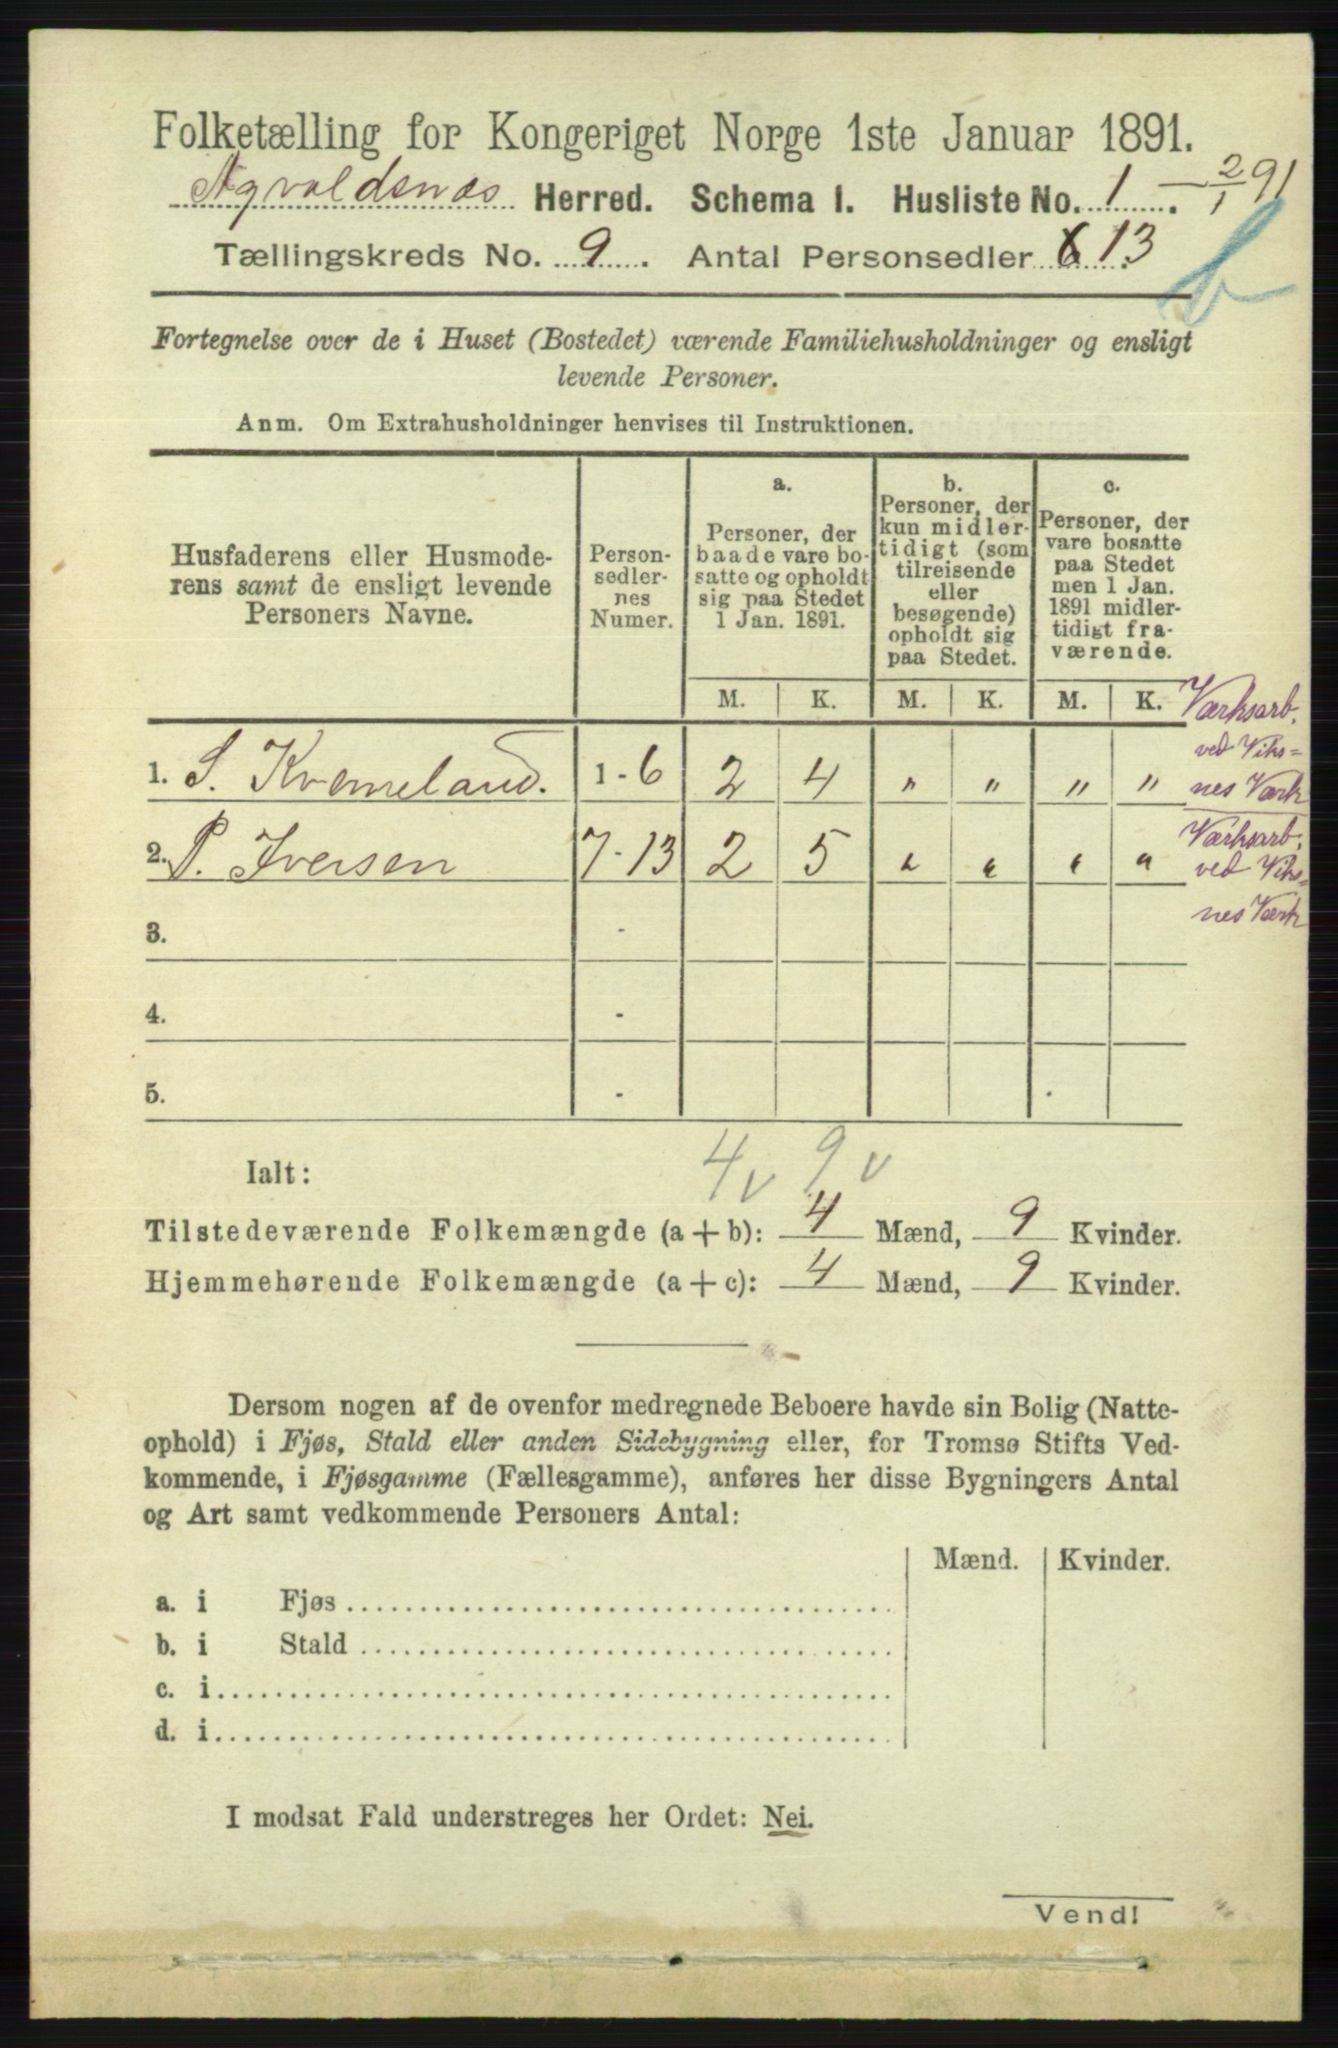 Folketælling for Kongeriget Norge 1ste Januar 1891.
Agvaldsnæs Herred. Schema 1. Husliste No. 1. — 2/1 91
Tællingskreds No. 9. Antal Personsedler 6 13.
b
Fortegnelse over de i Huset (Bostedet) værende Familiehusholdninger og ensligt
levende Personer.
Anm. Om Extrahusholdninger henvises til Instruktionen.
Husfaderens eller Husmode-
rens samt de ensligt levende
Personers Navne.
Person-
sedler-
nes
Numer.
a.
Personer, der
baade vare bo-
satte og opholdt
sig paa Stedet
1 Jan. 1891.
b.
Personer, der
kun midler-
tidigt (som
tilreisende
eller
besøgende)
opholdt sig
paa Stedet.
c.
Personer, der
vare bosatte
paa Stedet
men 1 Jan.
1891 midler-
tidigt fra-
værende.
M. K. M. K. M. K.
1. S. Kvemeland. 1-6 2 4 " " " "
Værksarb.
ved Viks-
nes Værk
2. P. Iversen 7-13 2 5 " " " "
Værksarb.
ved Viks-
nes Værk
3. -
4. -
5. -
4 v 9 v
Ialt:
Tilstedeværende Folkemængde (a + b): 4 Mænd, 9 Kvinder.
Hjemmehørende Folkemængde (a + c): 4 Mænd, 9 Kvinder.
Dersom nogen af de ovenfor medregnede Beboere havde sin Bolig (Natte-
ophold) i Fjøs, Stald eller anden Sidebygning eller, for Tromsø Stifts Ved-
kommende, i Fjøsgamme (Fællesgamme), anføres her disse Bygningers Antal
og Art samt vedkommende Personers Antal:
Mænd. Kvinder.
a. i Fjøs
b. i Stald
c. i
d. i
I modsat Fald understreges her Ordet: Nei.
Vend!